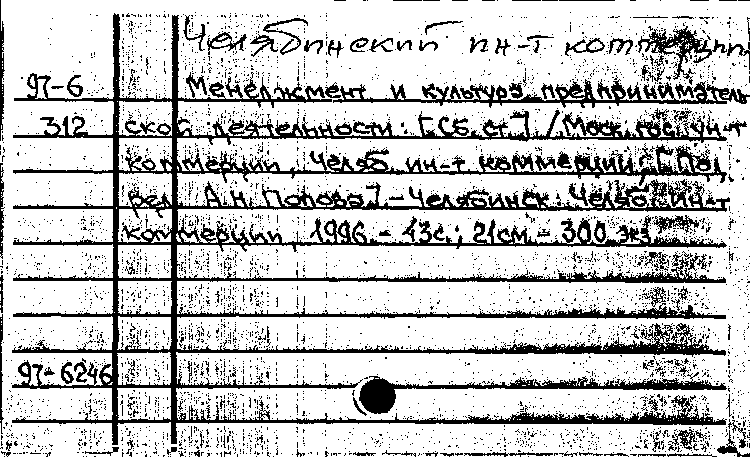 Челябинский ин-т коммерции
97-6 Менеджмент и культура предприниматель
312 ской деятельности: [Сб. ст.] / Моск. гос. ун-т
коммерции, Челяб. ин-т коммерции; [Под
ред. А.Н. Попова]. - Челябинск: Челяб. ин-т
коммерции, 1996. - 43с.; 21см. - 300 экз.
97-6246